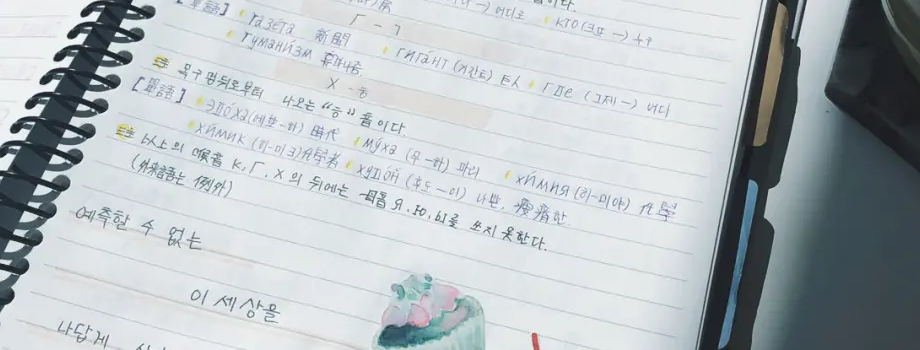 КТО (크또 →) 누구
Г - ㄱ
[單語] газета 新聞 гигант (기간트) 거인 где (그제 →) 어디
гуманизм
X - ㅎ
목구멍 뒤로부터 나오는 "ㅎ" 音이다.
[單語] эпоха (에뽀-하) 時代 муха (무-하) 파리 химия (히-미야) 化學
химик (히-미크) 化學者 худой (후도-이) 나쁜,
以上의 喉音 К, Г, Х 의 뒤에는 母音 Я, Ю, Ы를 쓰지 못한다.
(外來語는 例外)
예측할 수 없는
이 세상을
나답게